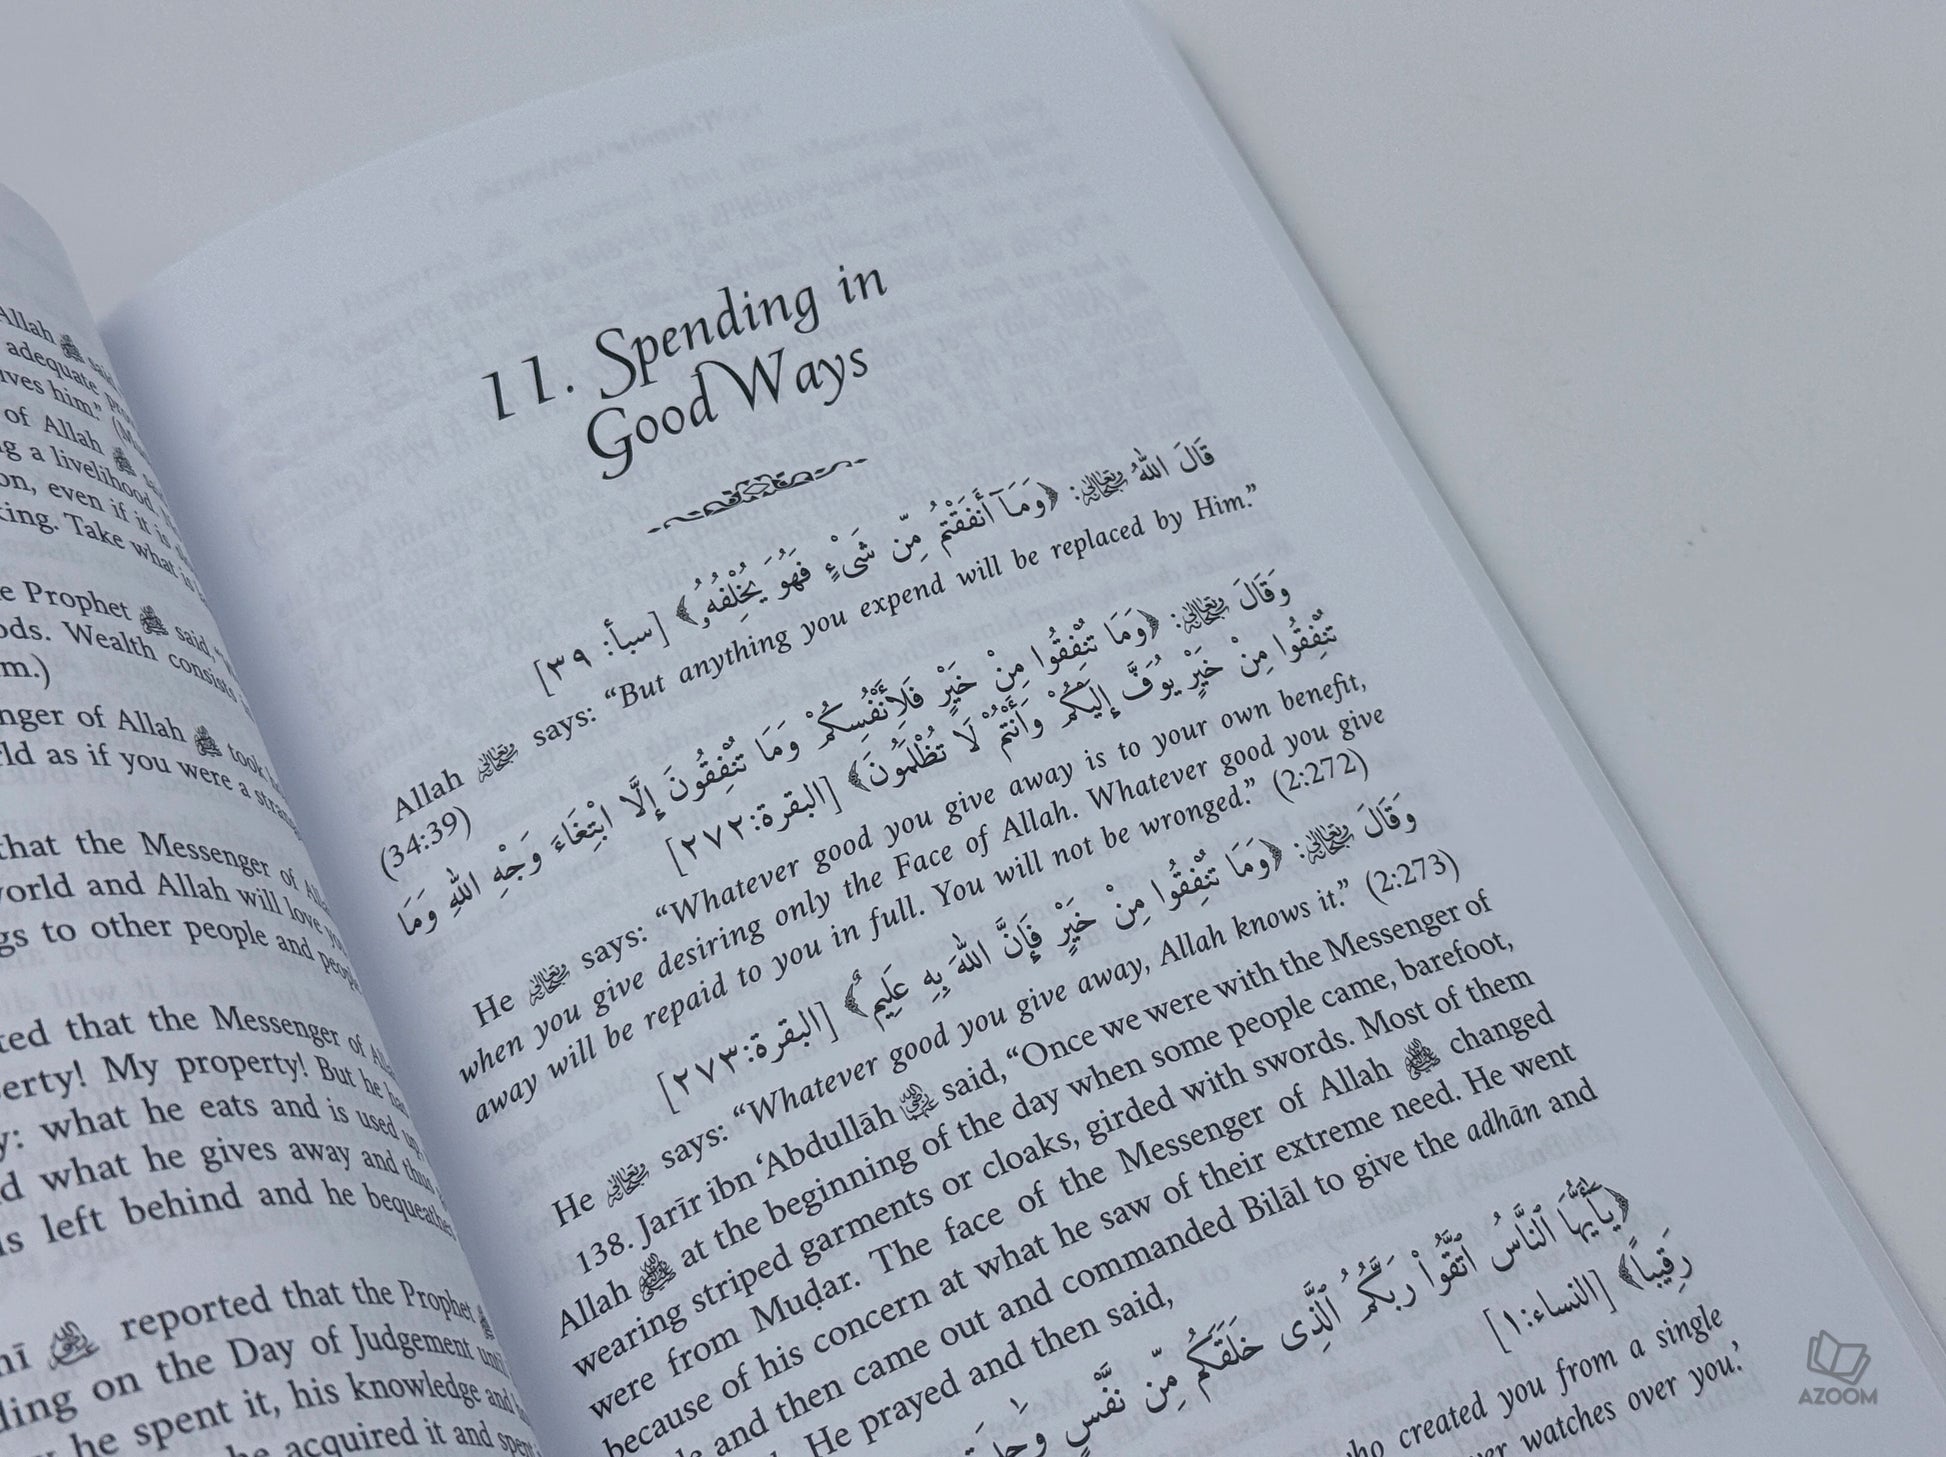 Allah ﷺ said
adequate pro
ives him." (M
of Allah ﷺ
ng a livelihood,
on, even if it is
king. Take what is
e Prophet ﷺ said, "
ods. Wealth consists
m.)
nger of Allah ﷺ took
rld as if you were a stran
that the Messenger of
world and Allah will love you
gs to other people and people
ted that the Messenger of
erty! My property! But he had
y: what he eats and is used up,
d what he gives away and thus
is left behind and he bequeathes
reported that the Prophet ﷺ
ding on the Day of Judgement until
he spent it, his knowledge and
he acquired it and spent
11. Spending in
Good Ways
قَالَ اللهُ سُبْحَانَهُ وَتَعَالَى: ﴿وَمَآ أَنفَقْتُم مِّن شَىْءٍ فَهُوَ يُخْلِفُهُۥ﴾ [سبأ: ٣٩]
Allah says: "But anything you expend will be replaced by Him."
(34:39)
وَقَالَ سُبْحَانَهُ وَتَعَالَى: ﴿وَمَا تُنْفِقُوا مِنْ خَيْرٍ فَلِأَنْفُسِكُمْ وَمَا تُنْفِقُونَ إِلَّا ابْتِغَاءَ وَجْهِ اللهِ وَمَا
تُنْفِقُوا مِنْ خَيْرٍ يُوَفَّ إِلَيْكُمْ وَأَنْتُمْ لَا تُظْلَمُونَ﴾ [البقرة:٢٧٢]
He says: "Whatever good you give away is to your own benefit,
when you give desiring only the Face of Allah. Whatever good you give
away will be repaid to you in full. You will not be wronged." (2:272)
وَقَالَ سُبْحَانَهُ وَتَعَالَى: ﴿وَمَا تُنْفِقُوا مِنْ خَيْرٍ فَإِنَّ اللهَ بِهِ عَلِيمٌ﴾ [البقرة:٢٧٣]
He says: "Whatever good you give away, Allah knows it." (2:273)
138. Jarīr ibn 'Abdullāh said, "Once we were with the Messenger of
Allah ﷺ at the beginning of the day when some people came, barefoot,
wearing striped garments or cloaks, girded with swords. Most of them
were from Muḍar. The face of the Messenger of Allah ﷺ changed
because of his concern at what he saw of their extreme need. He went
and then came out and commanded Bilāl to give the adhān and
He prayed and then said,
﴿يَٰٓأَيُّهَا ٱلنَّاسُ ٱتَّقُوا۟ رَبَّكُمُ ٱلَّذِى خَلَقَكُم مِّن نَّفْسٍ
رَقِيبًا﴾ [النساء:١]
who created you from a single
watches over you.'
AZOOM